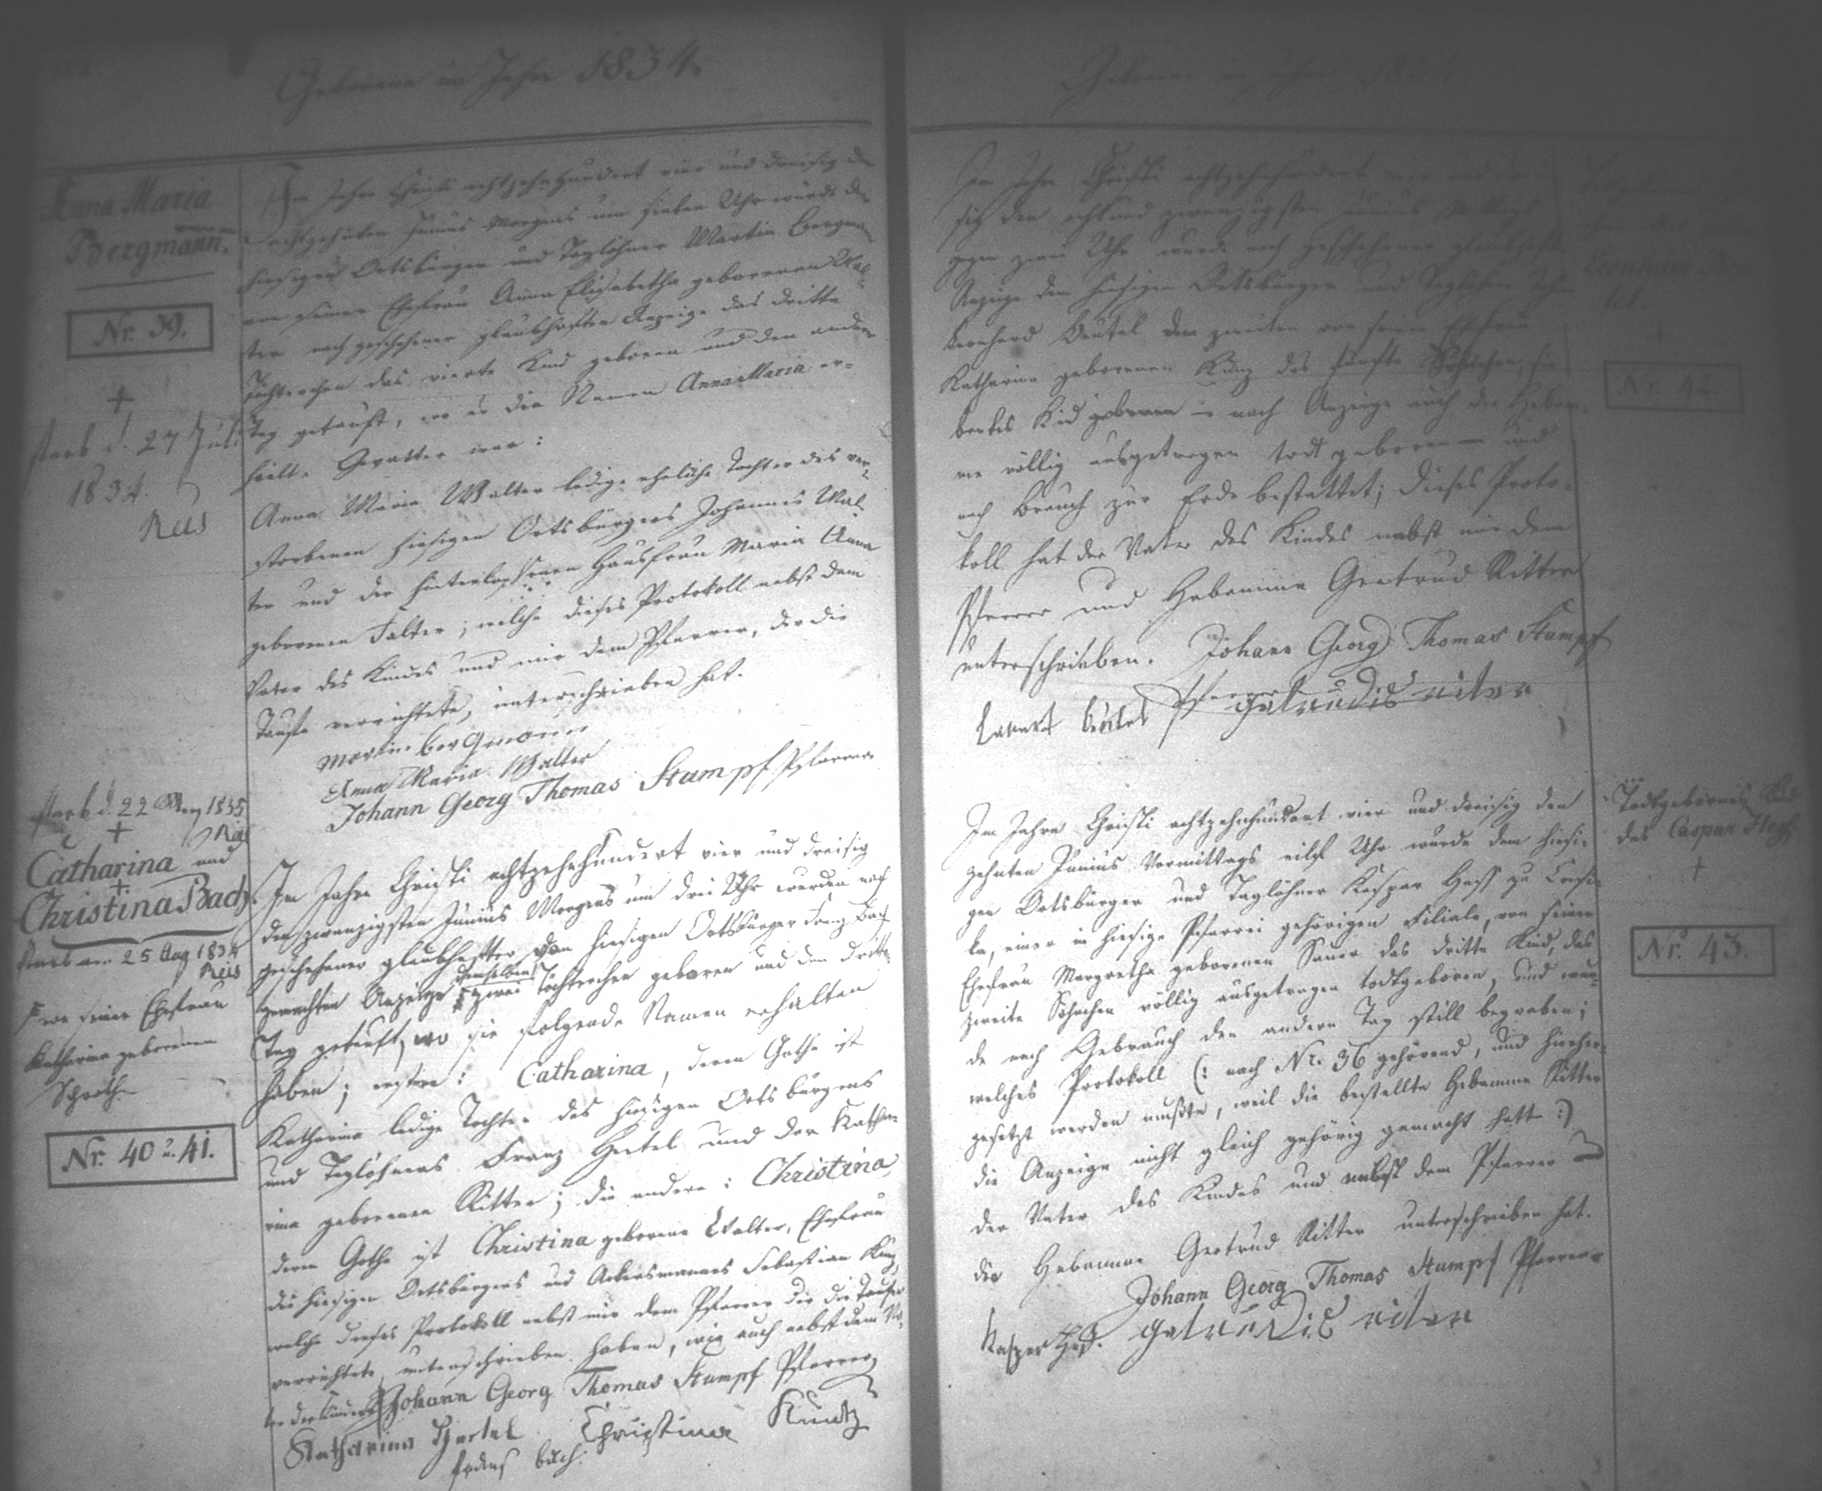 Geborene im Jahre 1834.
Anna Maria
Bergmann.
Nr. 39.
+
starb d. 27 Juli
1834.
Reis
Im Jahre Christi achtzehnhundert vier und dreisig den
achtzehnten Junius Morgens um sieben Uhr wurde dem
hiesigen Ortsbürger und Taglöhner Martin Bergmann
von seiner Ehefrau Anna Elisabetha geborenen Wal-
ter nach geschehener glaubhafter Anzeige das dritte
Töchterchen das vierte Kind geboren und den andern
Tag getauft, wo es die Namen Anna Maria er-
hielt. Gevatter war:
Anna Maria Walter ledige eheliche Tochter des ver-
storbenen hiesigen Ortsbürgers Johannes Wal-
ter und der hinterlassenen Hausfrau Maria Anna
geborenen Falter; welche dieses Protokoll nebst dem
Vater des Kindes und mir dem Pfarrer, der die
Taufe verrichtete, unterschrieben hat.
Martin bergmann
Anna Maria Walter
Johann Georg Thomas Stumpf Pfarrer
starb d. 22 May 1835
+ Reis
Catharina und
+
Christina Bach
starb am 25 Aug 1834
Reis
von seiner Ehefrau
Katharina geborenen
Schroth
Nr. 40 u. 41.
Im Jahre Christi achtzehnhundert vier und dreisig
den zwanzigsten Junius Morgens um drei Uhr wurden nach
geschehener glaubhafter dem hiesigen Ortsbürger Franz Bach
gemachten Anzeige demselben zwei Töchterchen geboren und den dritten
Tag getauft, wo sie folgende Namen erhalten
haben; erstere: Catharina, deren Gothe ist
Katharina ledige Tochter des hiesigen Ortsbürgers
und Taglöhners Franz Hertel und der Katha-
rina geborenen Ritter; die andere: Christina,
deren Gothe ist Christina geborene Walter, Ehefrau
des hiesigen Ortsbürgers und Ackersmannes Sebastian Kunz,
welche dieses Protokoll nebst mir dem Pfarrer der die Taufe
verrichtete unterschrieben haben, wie auch nebst dem Va-
ter der Kinder Johann Georg Thomas Stumpf Pfarrer
Katharina Hertel Christina Kuntz
franz bach
Im Jahre Christi achtzehnhundert vier und
sig den acht und zwanzigsten Junius
gegen zwei Uhr wurde nach geschehener glaubhafter
Anzeige dem hiesigen Ortsbürger und Taglöhner
Leonhard Beutel dem zweiten von seiner Ehefrau
Katharina geborenen Kunz das fünfte Söhnchen,
bentes Kind geboren — nach Anzeige auch der Hebam-
me völlig ausgetragen todt geboren — und
nach Brauch zur Erde bestattet; dieses Proto-
koll hat der Vater des Kindes nebst mir dem
Pfarrer und Hebamme Gertrud Ritter
unterschrieben. Johann Georg Thomas Stumpf
Pfarrer
beutel gertrudis riter
Leonhard
Nr. 42.
Todtgebornes Kind
des Caspar Heß
+
Nr. 43.
Im Jahre Christi achtzehnhundert vier und dreisig den
zehnten Junius Vormittags eilf Uhr wurde dem hiesi-
gen Ortsbürger und Taglöhner Kaspar Hess zu
la, einer in hiesige Pfarrei gehörigen Filiale, von seiner
Ehefrau Margretha geborenen Sauer das dritte Kind, das
zweite Söhnchen völlig ausgetragen todtgeboren, und wur-
de nach Gebrauch den andern Tag still begraben;
welches Protokoll (: nach Nr. 36 gehörend, und hierher
gesetzt werden mußte, weil die bestellte Hebamme Ritter
die Anzeige nicht gleich gehörig gemacht hatte :)
der Vater des Kindes und nebst dem Pfarrer
die Hebamme Gertrud Ritter unterschrieben hat.
Johann Georg Thomas Stumpf Pfarrer
Kasper Heß. gertrudis riter